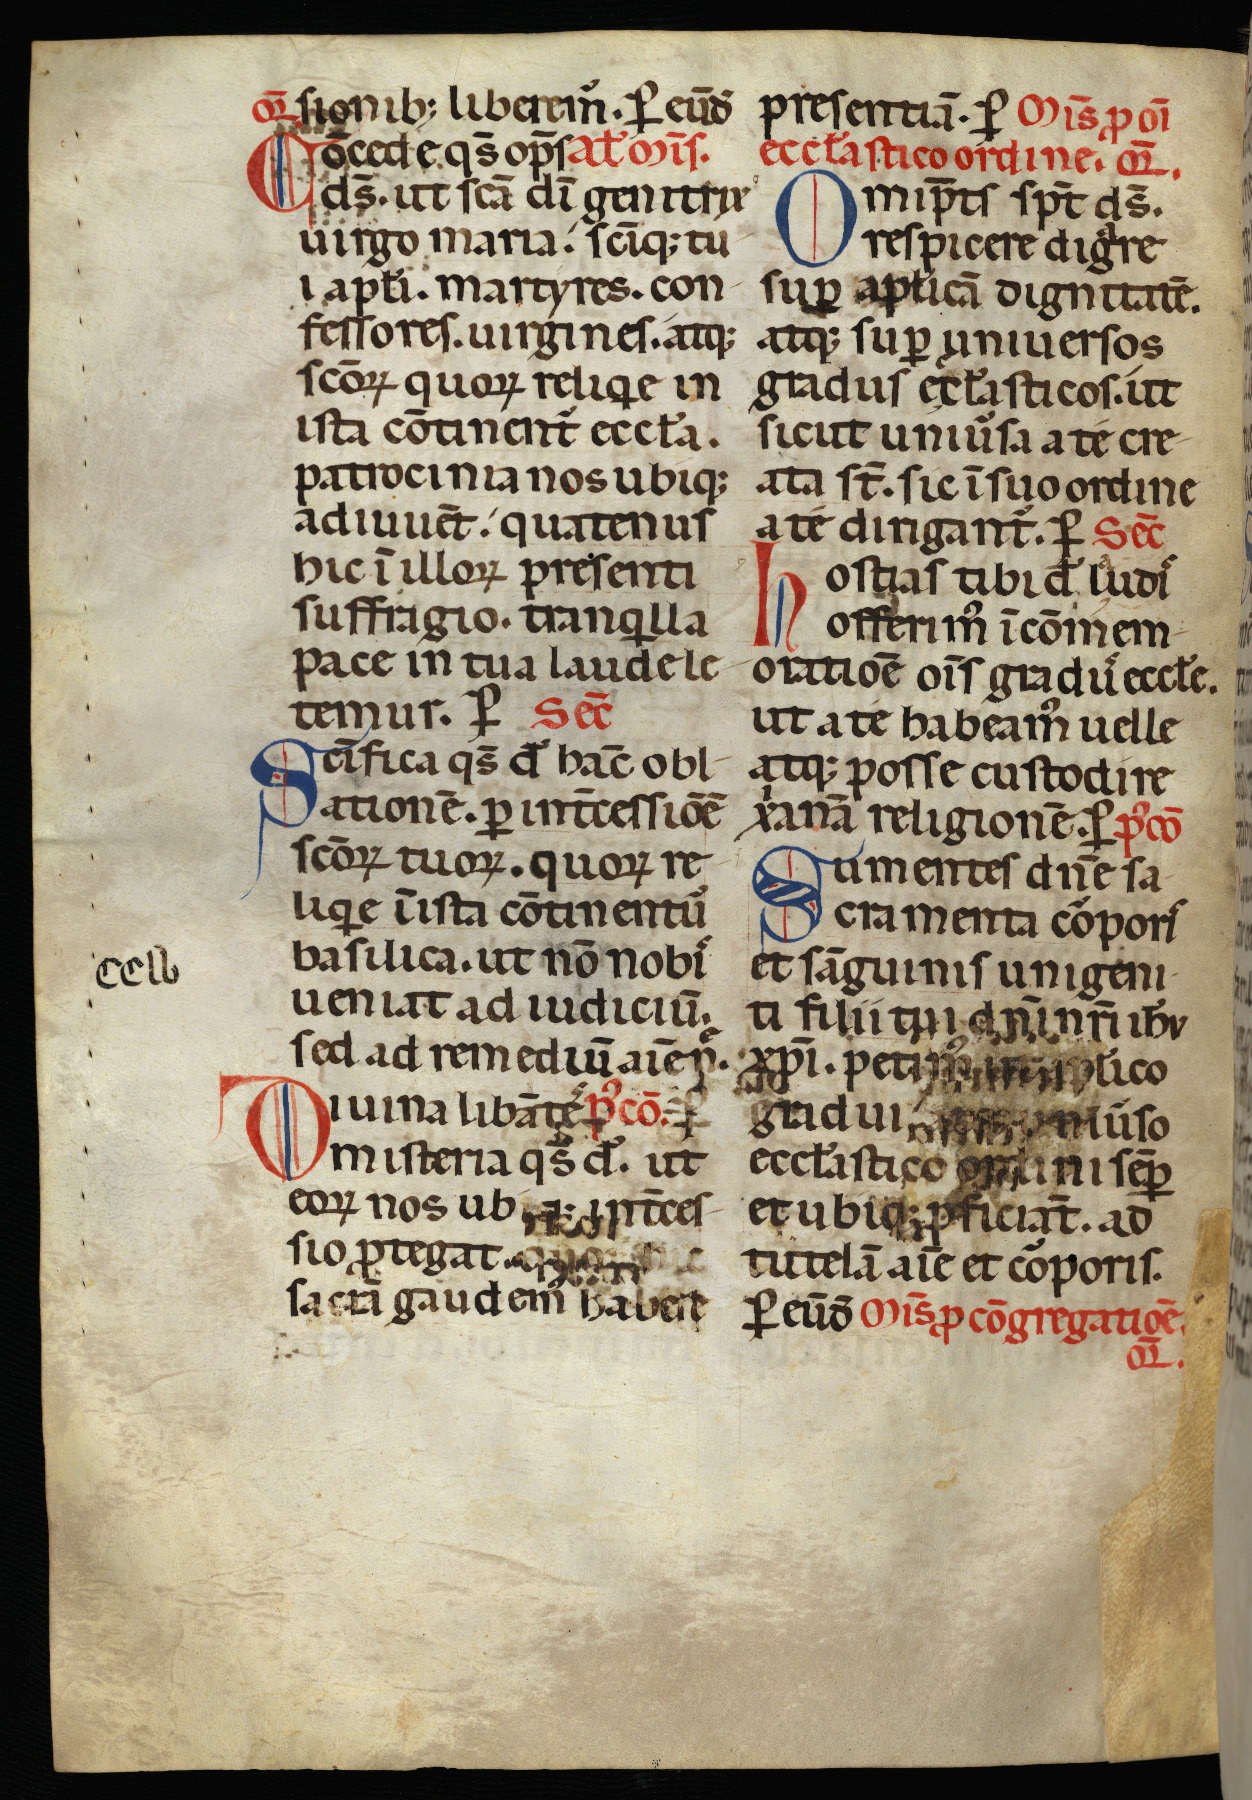 sionib; liberem᷒. P̱ eūd̄
Cōcede qs̄ op̄s Al̄ mis̄. Or̄
ds̄. ut scā dī genitrix
uirgo maria. sciq; tu
i apłi. martyres. con
fessores. uirgines. atq;
scōꝝ quoꝝ reliqie in
ista cōtinent᷒ eccła.
patrocinia nos ubiq;
adiuuēt. quatenus
hic ī illoꝝ presenti
suffragio. tranqilla
pace in tua laude le
temur. P̱ Sec̄
Scīfica qs̄ d̄ hāc obl
ationē. ꝑ intc̄essiōē
scōꝝ tuoꝝ. quoꝝ re
liqie ī ista cōtinentu᷒
basilica. ut nō nobi᷒
ueniat ad iudiciū.
sed ad remediū aiē n̄re.
Diuina libāte᷒ p᷒cō. P̱
misteria qs̄ d̄. ut
eoꝝ nos ubiq; intc̄es
sio ꝓtegat.
sacr̄i gaudem᷒ habere
ccłb
presentiā. P̱ Mis̄ ꝓ oī
eccłastico ordine. Or̄.
Omip̄ts sp̄t ds̄.
respicere digāre
suꝑ aplicā dignitatē.
atq; suꝑ uniuersos
gradus eccłasticos. ut
sicut uniu᷒sa a te cre
ata st̄. sic ī suo ordine
a te dirigant᷒. P̱ Sec̄
hostias tibi d̄ laudi᷒
offerim᷒ ī cōmem
oratiōē ois̄ graduū eccłe.
ut a te habeam᷒ uelle
atq; posse custodire
xianā religionē. P̱ p᷒cō
Sumentes dn̄e sa
cramenta co᷒pori᷒
et sāguinis unigeni
ti filii tui dn̄i nr̄i ihv
xp̄i. petim᷒ ut aplico
gradui uniu᷒so
eccłastico ordini sēꝑ
et ubiq; ꝓficiāt. ad
tutelā aiē et co᷒poris.
P̱ eūd̄ Mis̄ ꝓ cōgregatiōē.
Or̄.